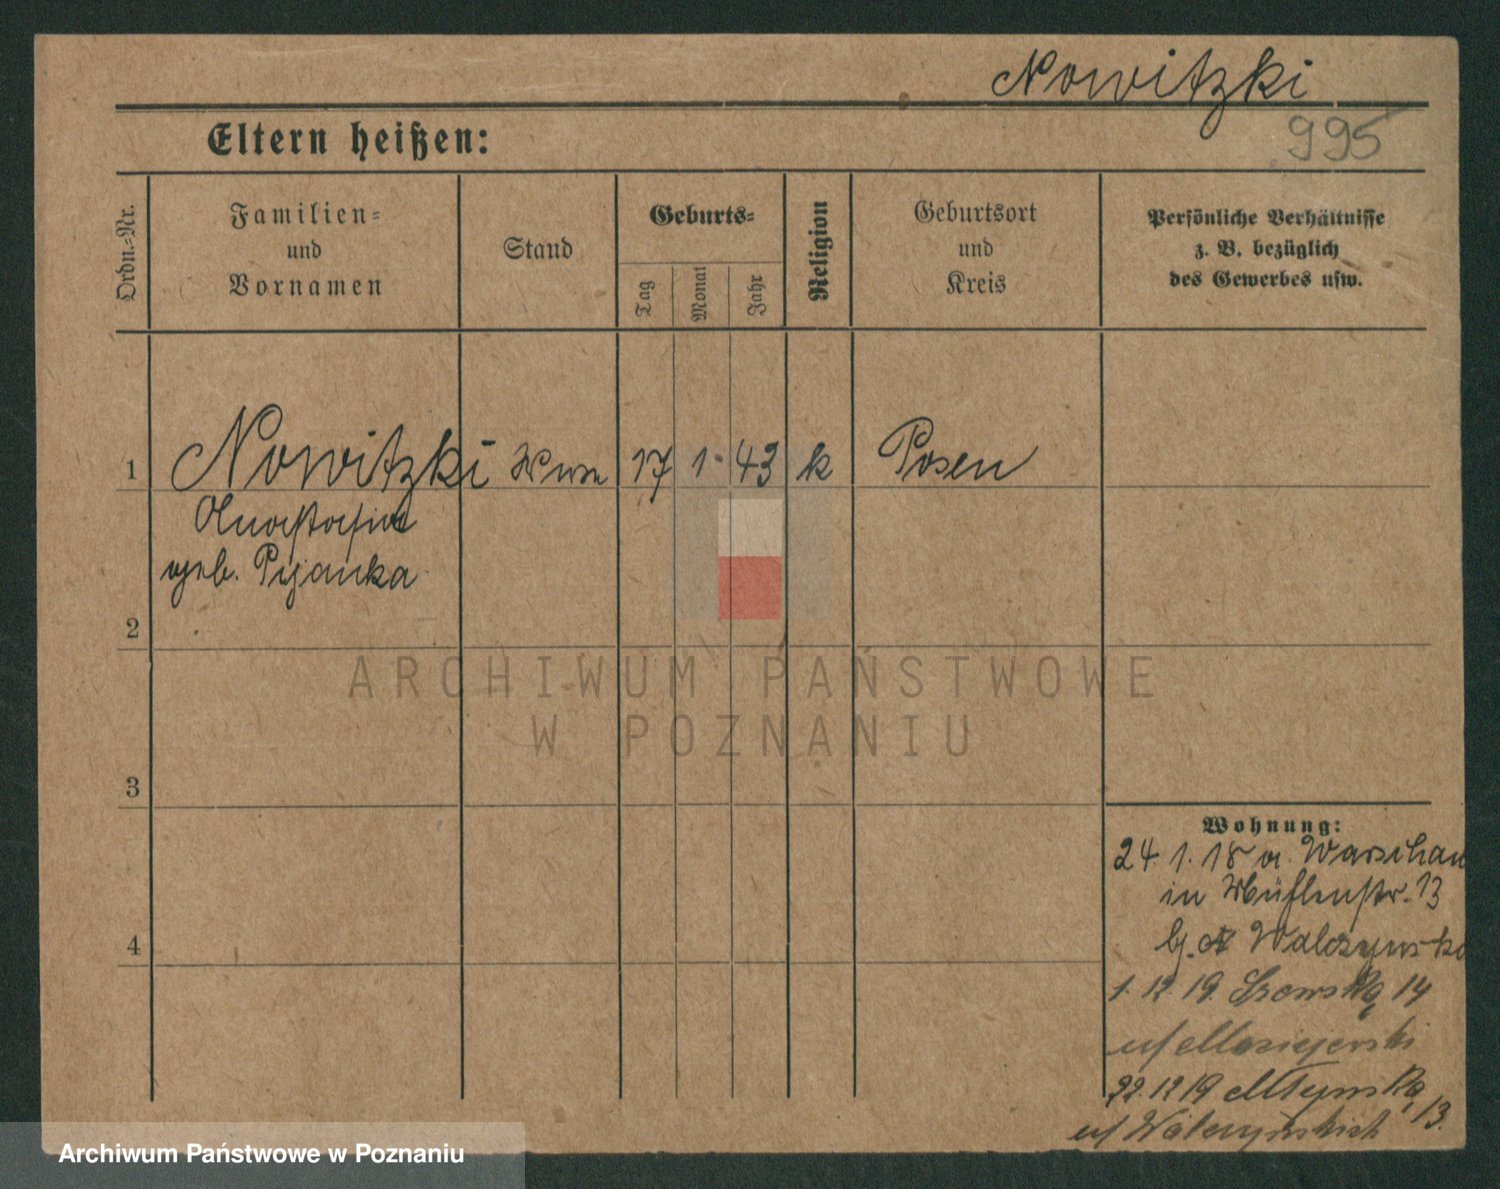 Nowitzki
995
Eltern heißen:
Ordn.=Nr.
Familien=
und
Vornamen
Stand
Geburts=
Tag
Monat
Jahr
Religion
Geburtsort
und
Kreis
Persönliche Verhältnisse
z. B. bezüglich
des Gewerbes usw.
1
Nowitzki Wwe 17 1. 43 k Posen
Anastasia
geb. Pijanka
2
ARCHIWUM PAŃSTWOWE
W POZNANIU
3
Wohnung:
24 1. 18 a. Warschau
in Mühlenstr. 13
b. Walczynska
4
1. 12. 19. 14
u/ Maciejewski
22. 12 19 Młyńska 13.
u/ Walczyńskich
Archiwum Państwowe w Poznaniu